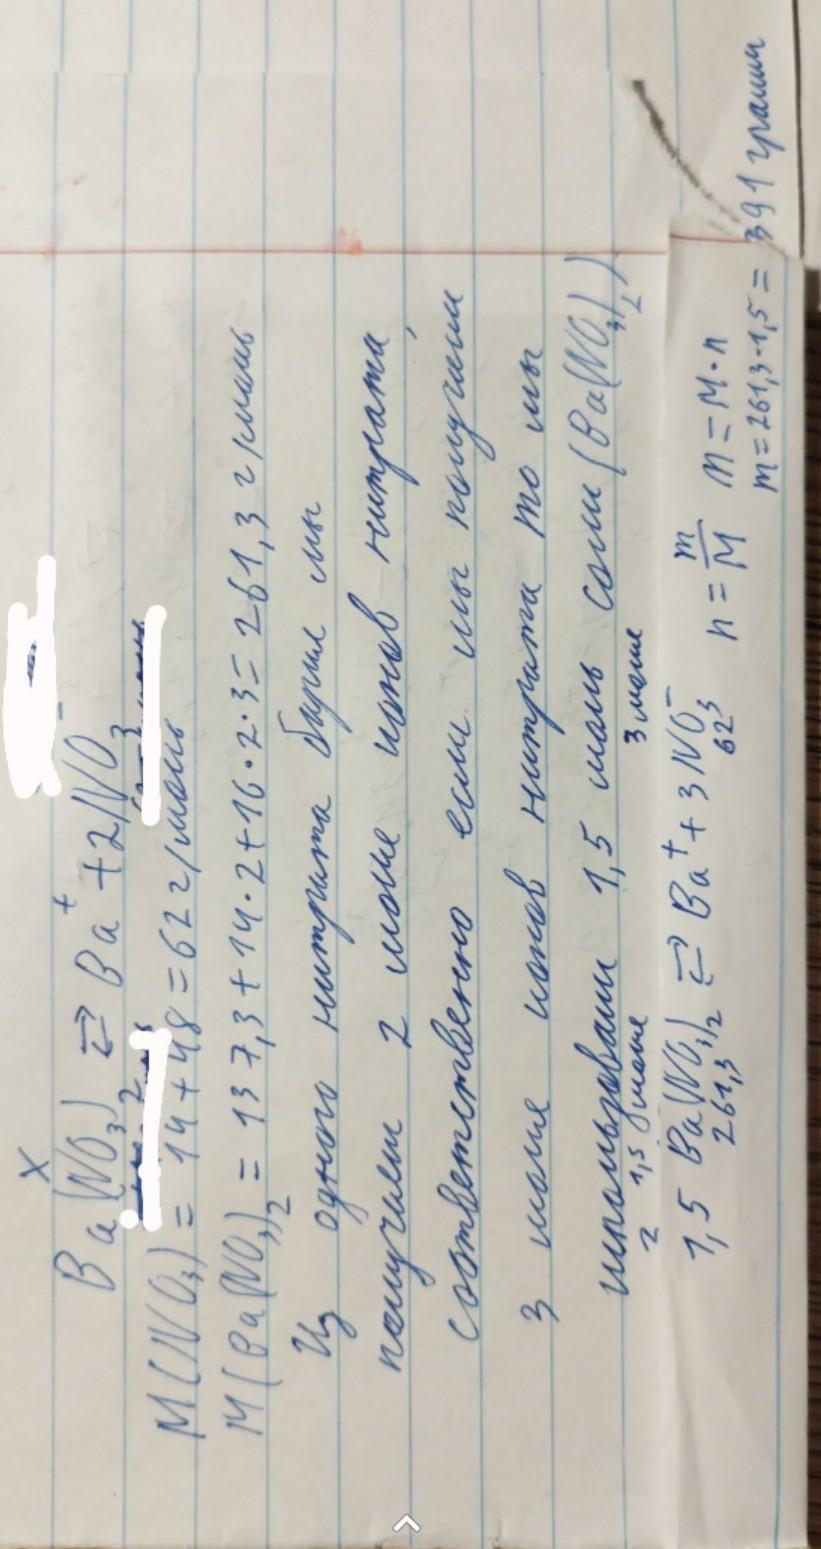 x
Ba(NO₃)₂ ⇄ Ba⁺ + 2NO₃⁻
M(NO₃) = 14+48 = 62 г/моль
M(Ba(NO₃)₂ = 137,3+14·2+16·2·3= 261,3 г/моль
Из одного нитрата бария мы
получаем 2 моля ионов нитрата,
соответственно если мы получаем
3 моля ионов нитрата то мы
использовали 1,5 моль соли (Ba(NO₃)₂)
2 1,5 моля 3 моля
1,5 Ba(NO₃)₂ ⇄ Ba⁺ + 3NO₃⁻ n = m/M m = M·n
261,3 62 m = 261,3·1,5 = 391 грамм